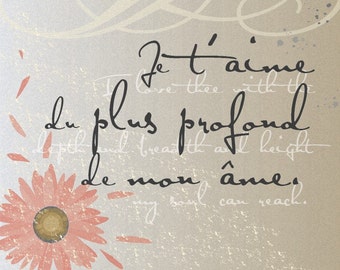 Je t'aime
I love thee with the
du plus profond
depth and breadth and height
de mon âme.
my soul can reach.